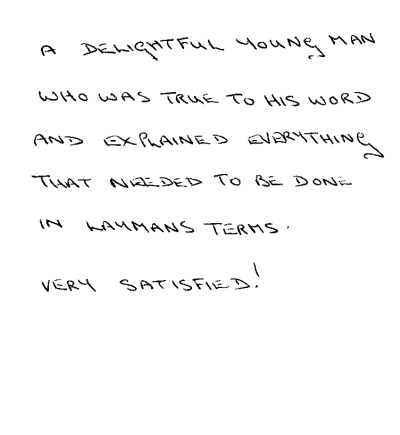 A DELIGHTFUL YOUNG MAN
WHO WAS TRUE TO HIS WORD
AND EXPLAINED EVERYTHING
THAT NEEDED TO BE DONE
IN LAYMANS TERMS.
VERY SATISFIED!